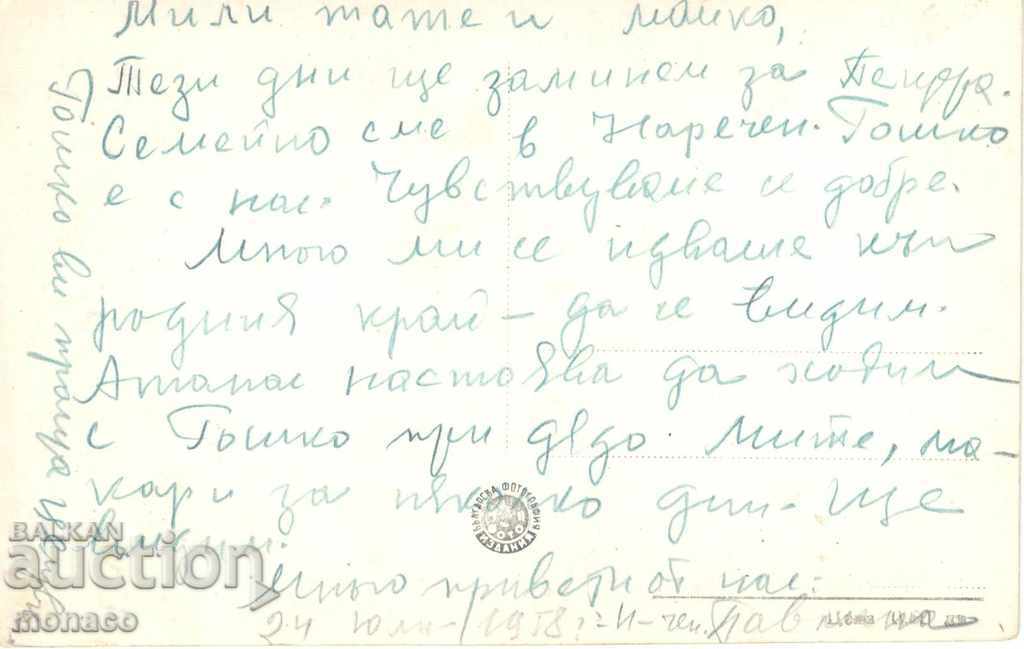 Мили тате и майко,
Тези дни ще заминем за
Семейно сме в Наречен. Гошко
е с нас. Чувствуваме се добре.
Много ми се идваше към
родния край – да се видим.
Атанас настоява да ходим
с Гошко при дядо Мите, ма-
кари за няколко дни. Ще
видим.
Много привети от нас:
24 юли 1958 г. Н-чен. Павлина
Гошко ви праща
БЪЛГАРСКА ФОТОГРАФИЯ
ФОТО
ИЗДАНИЯ
Цена
BALKAN
auction
monaco